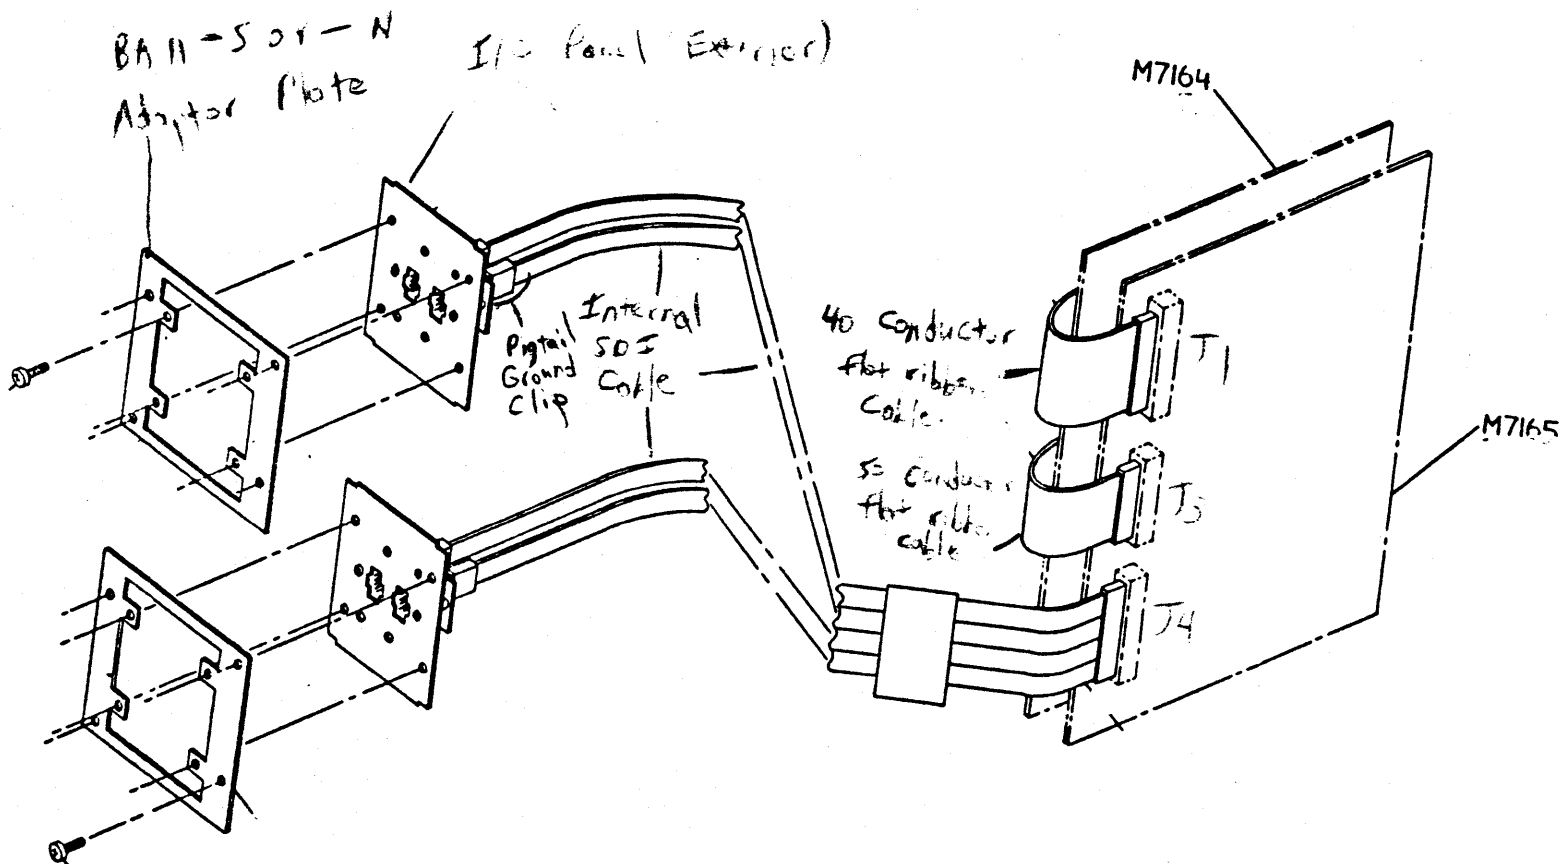 BA11-S or -N
Adaptor Plate
I/O Panel Exterior)
M7164
Pigtail
Ground
Clip
Internal
SDI
Cable
40 Conductor
flat ribbon
Cable
J1
M7165
50 conductor
flat ribbon
cable
J4